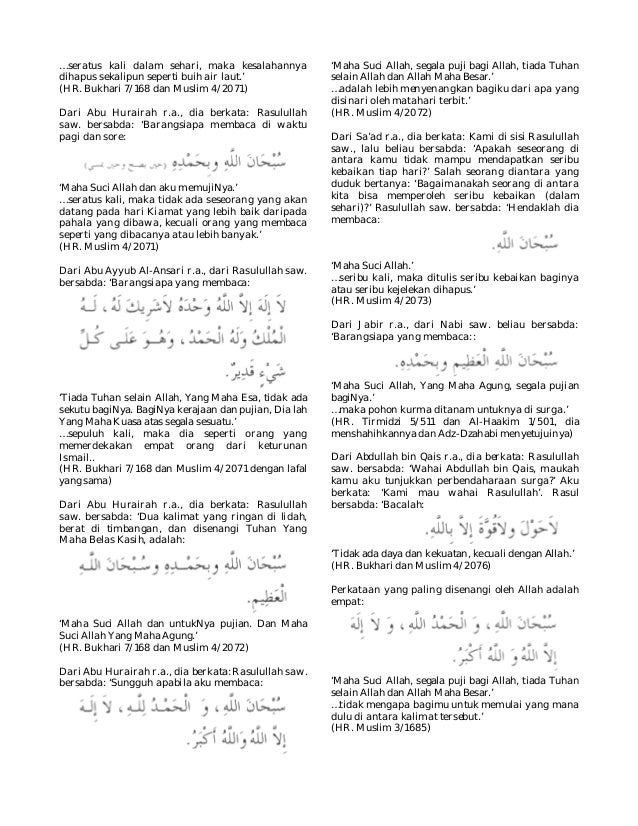 …seratus kali dalam sehari, maka kesalahannya
dihapus sekalipun seperti buih air laut.’
(HR. Bukhari 7/168 dan Muslim 4/2071)
Dari Abu Hurairah r.a., dia berkata: Rasulullah
saw. bersabda: ‘Barangsiapa membaca di waktu
pagi dan sore:
سُبْحَانَ اللَّهِ وبِحَمْدِهِ (حين يصبح وحين يمسي)
‘Maha Suci Allah dan aku memujiNya.’
…seratus kali, maka tidak ada seseorang yang akan
datang pada hari Kiamat yang lebih baik daripada
pahala yang dibawa, kecuali orang yang membaca
seperti yang dibacanya atau lebih banyak.’
(HR. Muslim 4/2071)
Dari Abu Ayyub Al-Ansari r.a., dari Rasulullah saw.
bersabda: ‘Barangsiapa yang membaca:
لاَ إِلَهَ إِلاَّ اللَّهُ وَحْدَهُ لاَشَرِيكَ لَهُ، لَـهُ
الْمُلْكُ وَلَهُ الْحَمْدُ، وَهُـوَ عَلَـى كُـلِّ
شَيْءٍ قَدِيرٌ.
‘Tiada Tuhan selain Allah, Yang Maha Esa, tidak ada
sekutu bagiNya. BagiNya kerajaan dan pujian, Dia lah
Yang Maha Kuasa atas segala sesuatu.’
…sepuluh kali, maka dia seperti orang yang
memerdekakan empat orang dari keturunan
Ismail..
(HR. Bukhari 7/168 dan Muslim 4/2071 dengan lafal
yang sama)
Dari Abu Hurairah r.a., dia berkata: Rasulullah
saw. bersabda: ‘Dua kalimat yang ringan di lidah,
berat di timbangan, dan disenangi Tuhan Yang
Maha Belas Kasih, adalah:
سُبْحَانَ اللَّهِ وبِحَمْـدِهِ وسُـبْحَانَ اللَّـهِ
الْعَظِيمِ.
‘Maha Suci Allah dan untukNya pujian. Dan Maha
Suci Allah Yang Maha Agung.’
(HR. Bukhari 7/168 dan Muslim 4/2072)
Dari Abu Hurairah r.a., dia berkata: Rasulullah saw.
bersabda: ‘Sungguh apabila aku membaca:
سُبْحَانَ اللَّهِ، وَ الْحَمْـدُ لِلَّـهِ، لاَ إِلَـهَ
إِلاَّ اللَّهُ وَاللَّهُ أَكْبَرُ.
‘Maha Suci Allah, segala puji bagi Allah, tiada Tuhan
selain Allah dan Allah Maha Besar.’
…adalah lebih menyenangkan bagiku dari apa yang
disinari oleh matahari terbit.’
(HR. Muslim 4/2072)
Dari Sa’ad r.a., dia berkata: Kami di sisi Rasulullah
saw., lalu beliau bersabda: ‘Apakah seseorang di
antara kamu tidak mampu mendapatkan seribu
kebaikan tiap hari?’ Salah seorang diantara yang
duduk bertanya: ‘Bagaimanakah seorang di antara
kita bisa memperoleh seribu kebaikan (dalam
sehari)?’ Rasulullah saw. bersabda: ‘Hendaklah dia
membaca:
سُبْحَانَ اللَّهِ.
‘Maha Suci Allah.’
…seribu kali, maka ditulis seribu kebaikan baginya
atau seribu kejelekan dihapus.’
(HR. Muslim 4/2073)
Dari Jabir r.a., dari Nabi saw. beliau bersabda:
‘Barangsiapa yang membaca::
سُبْحَانَ اللَّهِ الْعَظِيمِ وبِحَمْدِهِ.
‘Maha Suci Allah, Yang Maha Agung, segala pujian
bagiNya.’
…maka pohon kurma ditanam untuknya di surga.’
(HR. Tirmidzi 5/511 dan Al-Haakim 1/501, dia
menshahihkannya dan Adz-Dzahabi menyetujuinya)
Dari Abdullah bin Qais r.a., dia berkata: Rasulullah
saw. bersabda: ‘Wahai Abdullah bin Qais, maukah
kamu aku tunjukkan perbendaharaan surga?’ Aku
berkata: ‘Kami mau wahai Rasulullah’. Rasul
bersabda: ‘Bacalah:
لاَحَوْلَ ولاَقُوَّةَ إِلاَّ بِاللَّهِ.
‘Tidak ada daya dan kekuatan, kecuali dengan Allah.’
(HR. Bukhari dan Muslim 4/2076)
Perkataan yang paling disenangi oleh Allah adalah
empat:
سُبْحَانَ اللَّهِ، وَ الْحَمْدُ اللَّهِ، وَ لاَ إِلَهَ
إِلاَّ اللَّهُ وَ اللَّهُ أَكْبَرُ.
‘Maha Suci Allah, segala puji bagi Allah, tiada Tuhan
selain Allah dan Allah Maha Besar.’
…tidak mengapa bagimu untuk memulai yang mana
dulu di antara kalimat tersebut.’
(HR. Muslim 3/1685)